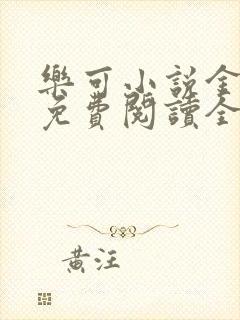 樂可小說全
免費閱讀全
黃汪